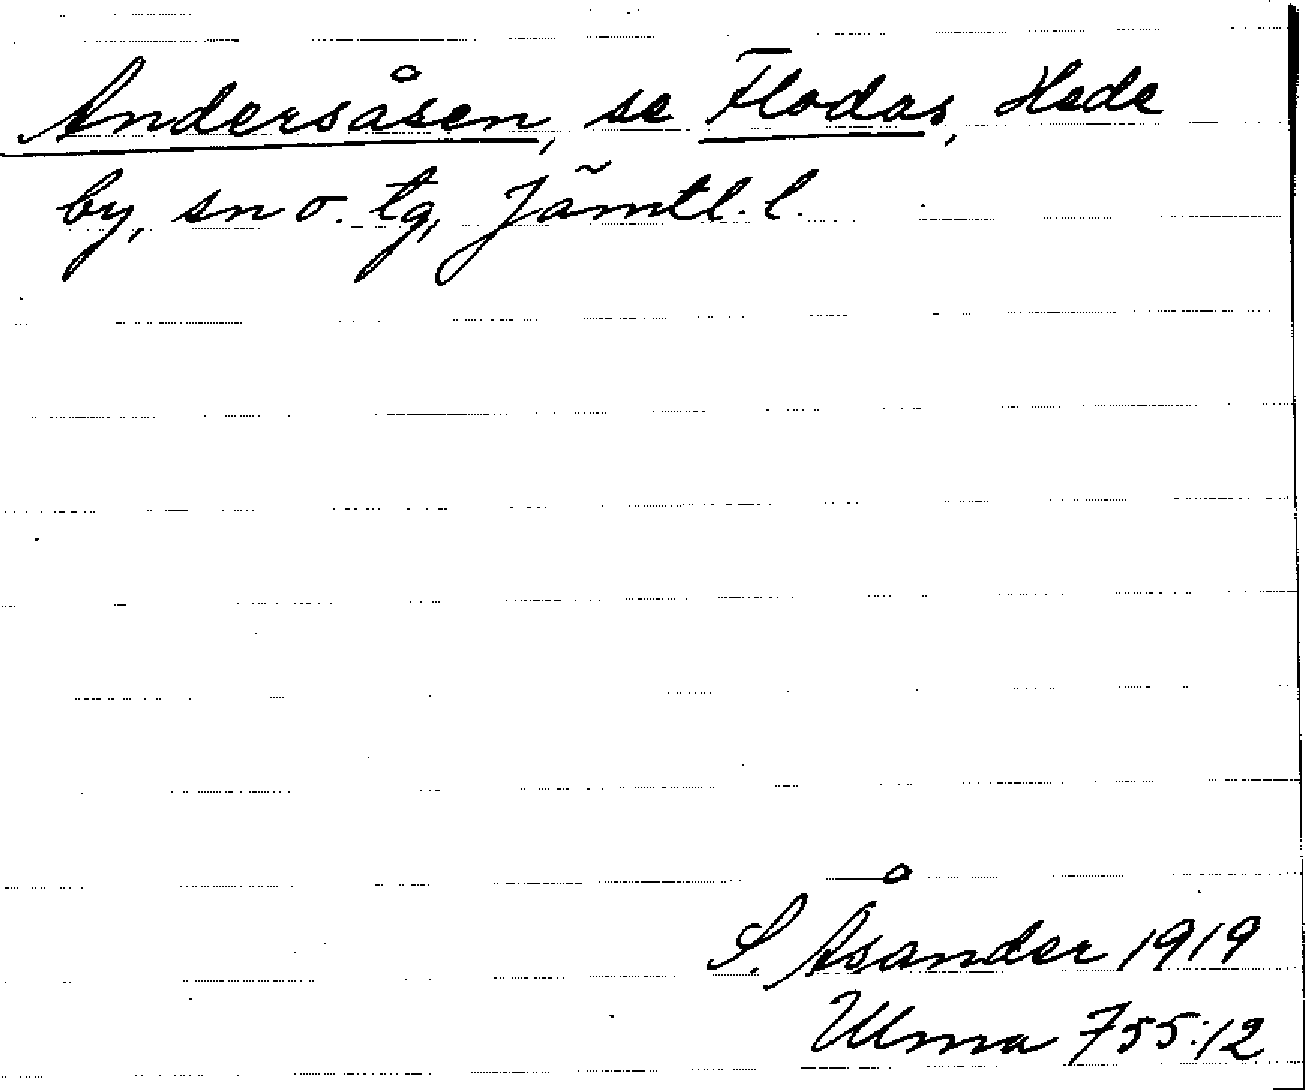 Andersåsen, se Flodas, Hede
by, sn o. tg, Jämtl. l.
S. Åsander 1919
Ulma 755:12